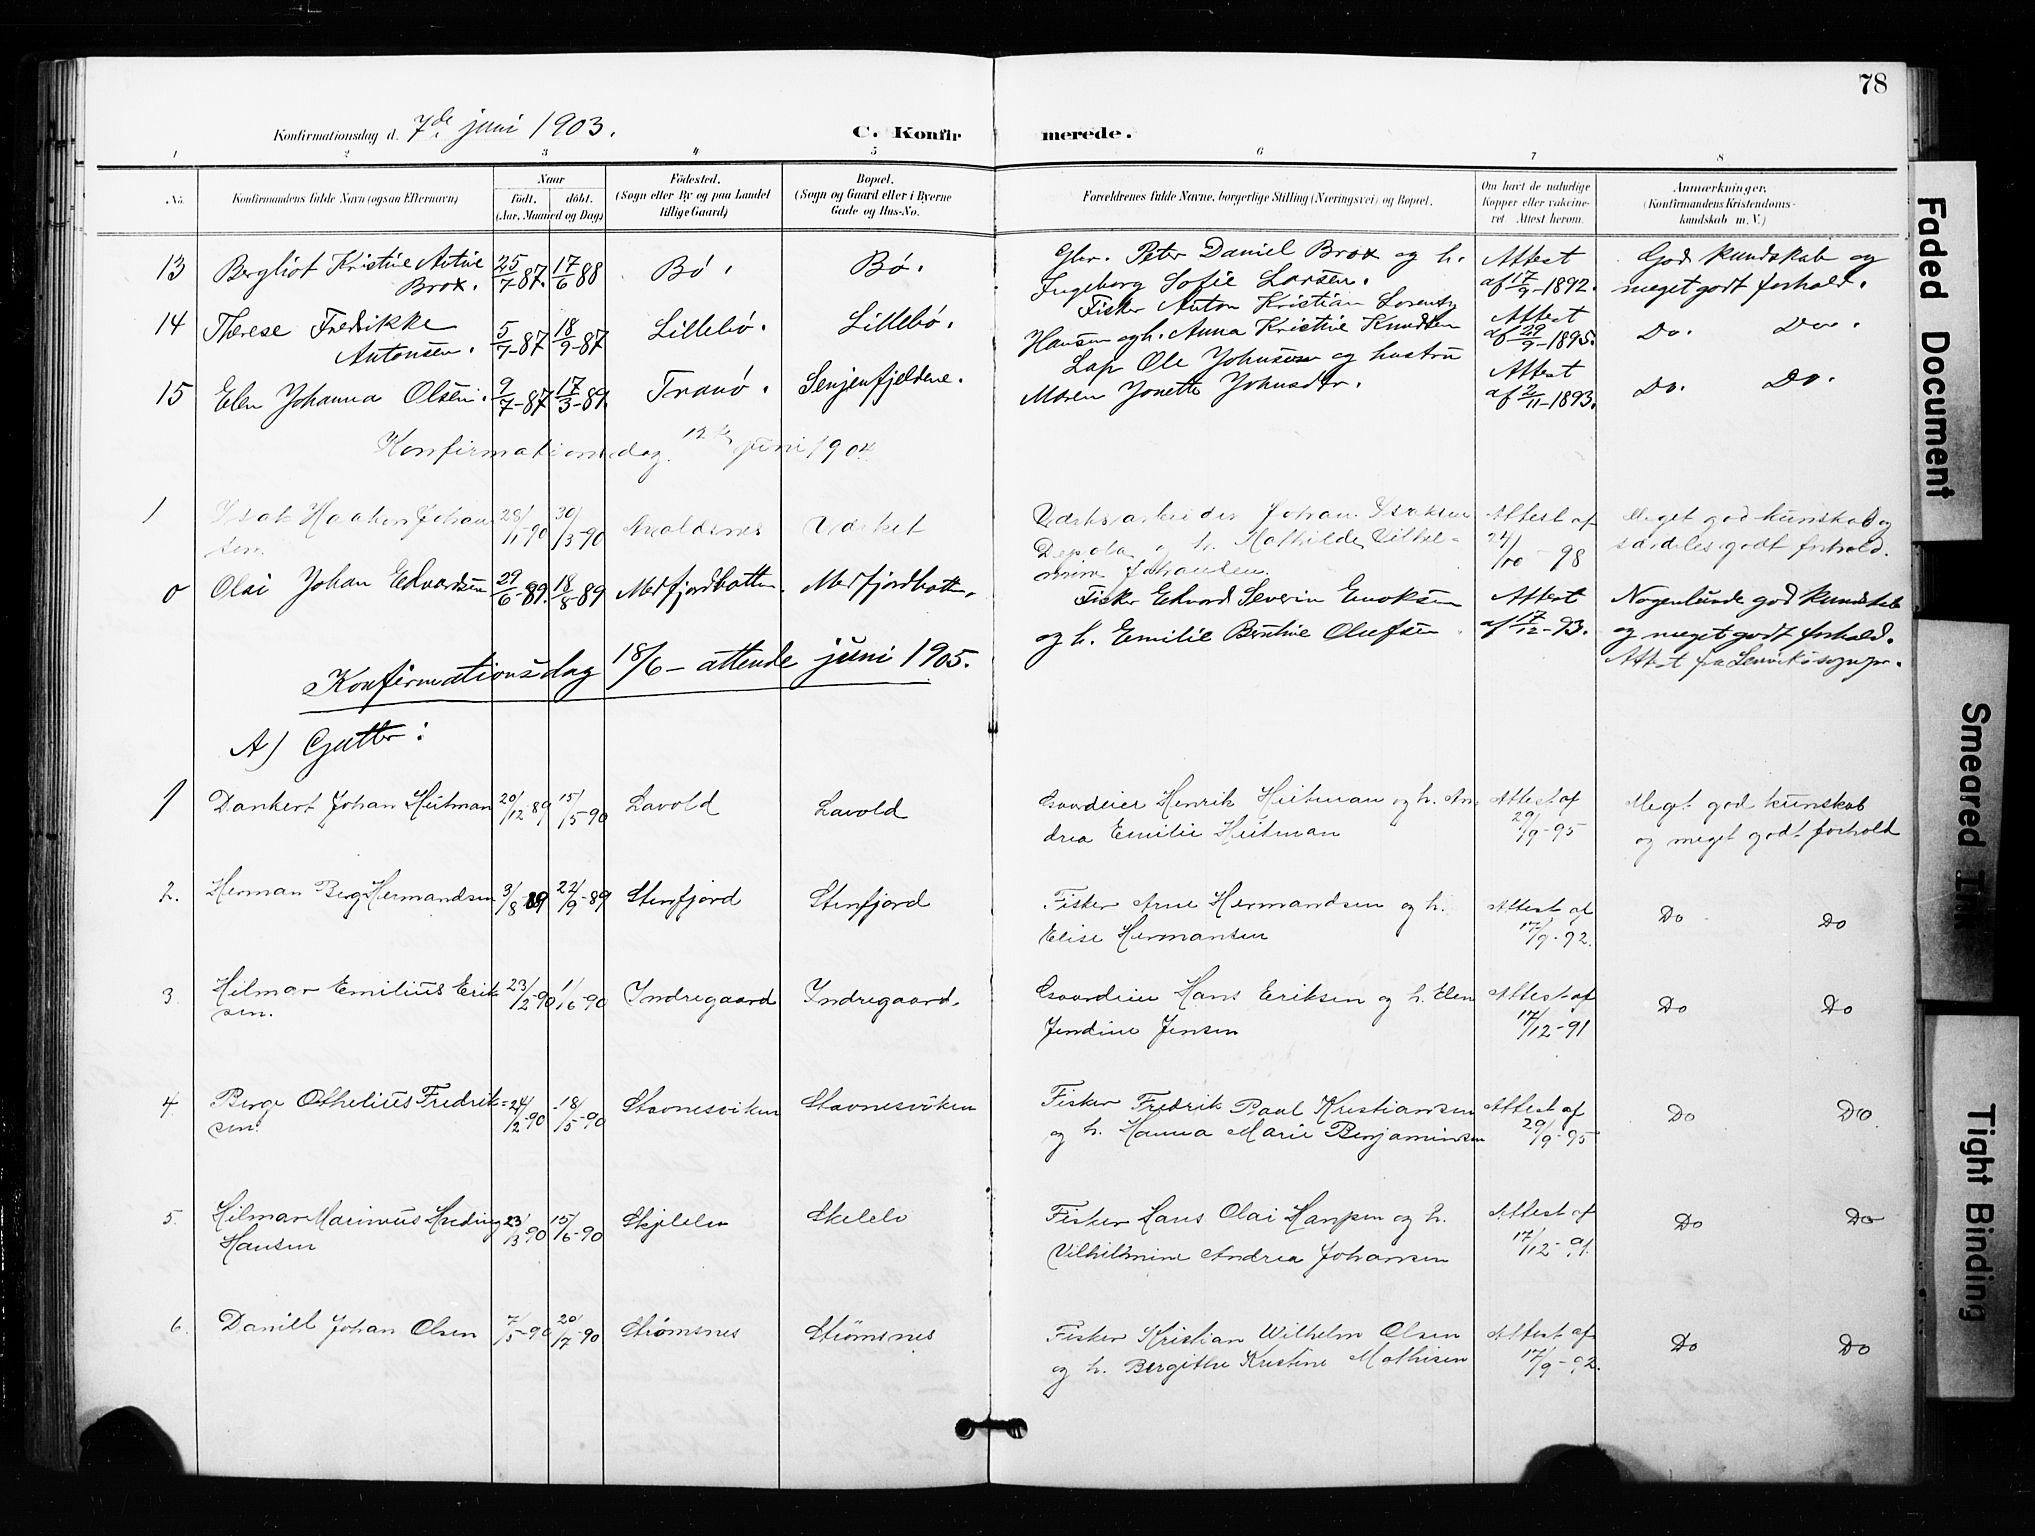 78
Konfirmationsdag d. 7de juni 1903.
C. Konfirmerede.
1 2 3 4 5 6 7 8
No.
Konfirmandens fulde Navn (ogsaa Efternavn)
Naar
født. døbt.
(Aar, Maaned og Dag)
Fødested.
(Sogn eller By og paa Landet
tillige Gaard)
Bopæl.
(Sogn og Gaard eller i Byerne
Gade og Hus-No.
Forældrenes fulde Navne, borgerlige Stilling (Næringsvei) og Bopæl.
Om havt de naturlige
Kopper eller vakcine-
ret. Attest herom.
Anmærkninger.
(Konfirmandens Kristendoms-
kundskab m. V.)
13 Bergliot Kristine Brox. 25/7-87. 17/6 88 Bø. Bø. Gbr. Peter Daniel Brox og h. Ingeborg Sofie Larsen. Attest af 17/9-1892. God kundskab og meget godt forhold.
14 Therese Fredrikke Antonsen. 5/7-87 18/9-87 Lillebø. Lillebø. Fisker Anton Kristian Lorents Hansen og h. Anna Kristine Knudsen Attest af 29/9-1895. Do. Do.
15 Elen Johanna Olsen. 9/7-87 17/3-89. Tranø. Senjenfjeldene. Lap Ole Johnsen og hustru Maren Jonette Johnsdtr. Attest af 2/11-1893. Do. Do.
Konfirmationsdag 12te juni 1904
1 Isak Haakon Johansen. 28/11 90 30/3-90 Avaldsnes Værket Johan Isaksen h. Mathilde Vilhelmine Johansen. Attest af 24/10-98 Meget god kunskab og særdeles godt forhold.
0 Olai Johan Edvardsen 29/6-89. 18/8-89 Medfjordbotten. Medfjordbotten. Fisker Edvard Severin Enoksen og h. Emilie Benthine Olufsen. Attest af 17/12-93. Nogenlunde god kundskab og meget godt forhold.
Attest fra
Konfirmationsdag 18/6 - attende juni 1905.
A) Gutter:
1 Dankert Johan Heitman 20/12 89 15/5-90 Lavold Lavold Gaardeier Henrik Heitman og h. Andrea Emilie Heitman Attest af 29/9-95 Meget god kunskab og meget godt forhold
2. Herman Berg Hermandsen 3/8-89 22/9-89 Stenfjord Stenfjord Fisker Arne Hermandsen og h. Elise Hermansen Attest af 17/9-92. Do Do
3. Hilmar Emilius Eriksen. 23/2-90 1/6-90 Indregaard Indregaard. Gaardeier Hans Eriksen og h. Elen Jendine Jensen Attest af 17/12-91 Do Do
4 Berge Othelius Fredriksen. 24/2-90 18/5-90 Stavnesviken Stavnesviken Fisker Fredrik Paul Kristiansen og h. Hanna Marie Benjaminsen Attest af 29/9-95 Do Do.
5. Hilmar Marinius Hansen 23/3 90 15/6-90 Skjelelv Skelelv Fisker Hans Olai Hansen og h. Vilhelmine Andrea Johansen Attest af 17/12-91. Do Do
6. Daniel Johan Olsen 7/5-90 20/7-90 Strømsnes Strømsnes Fisker Kristian Wilhelm Olsen og h. Bergithe Kristine Mathisen Attest af 17/9-92. Do Do
Faded Document
Smeared Ink
Tight Binding